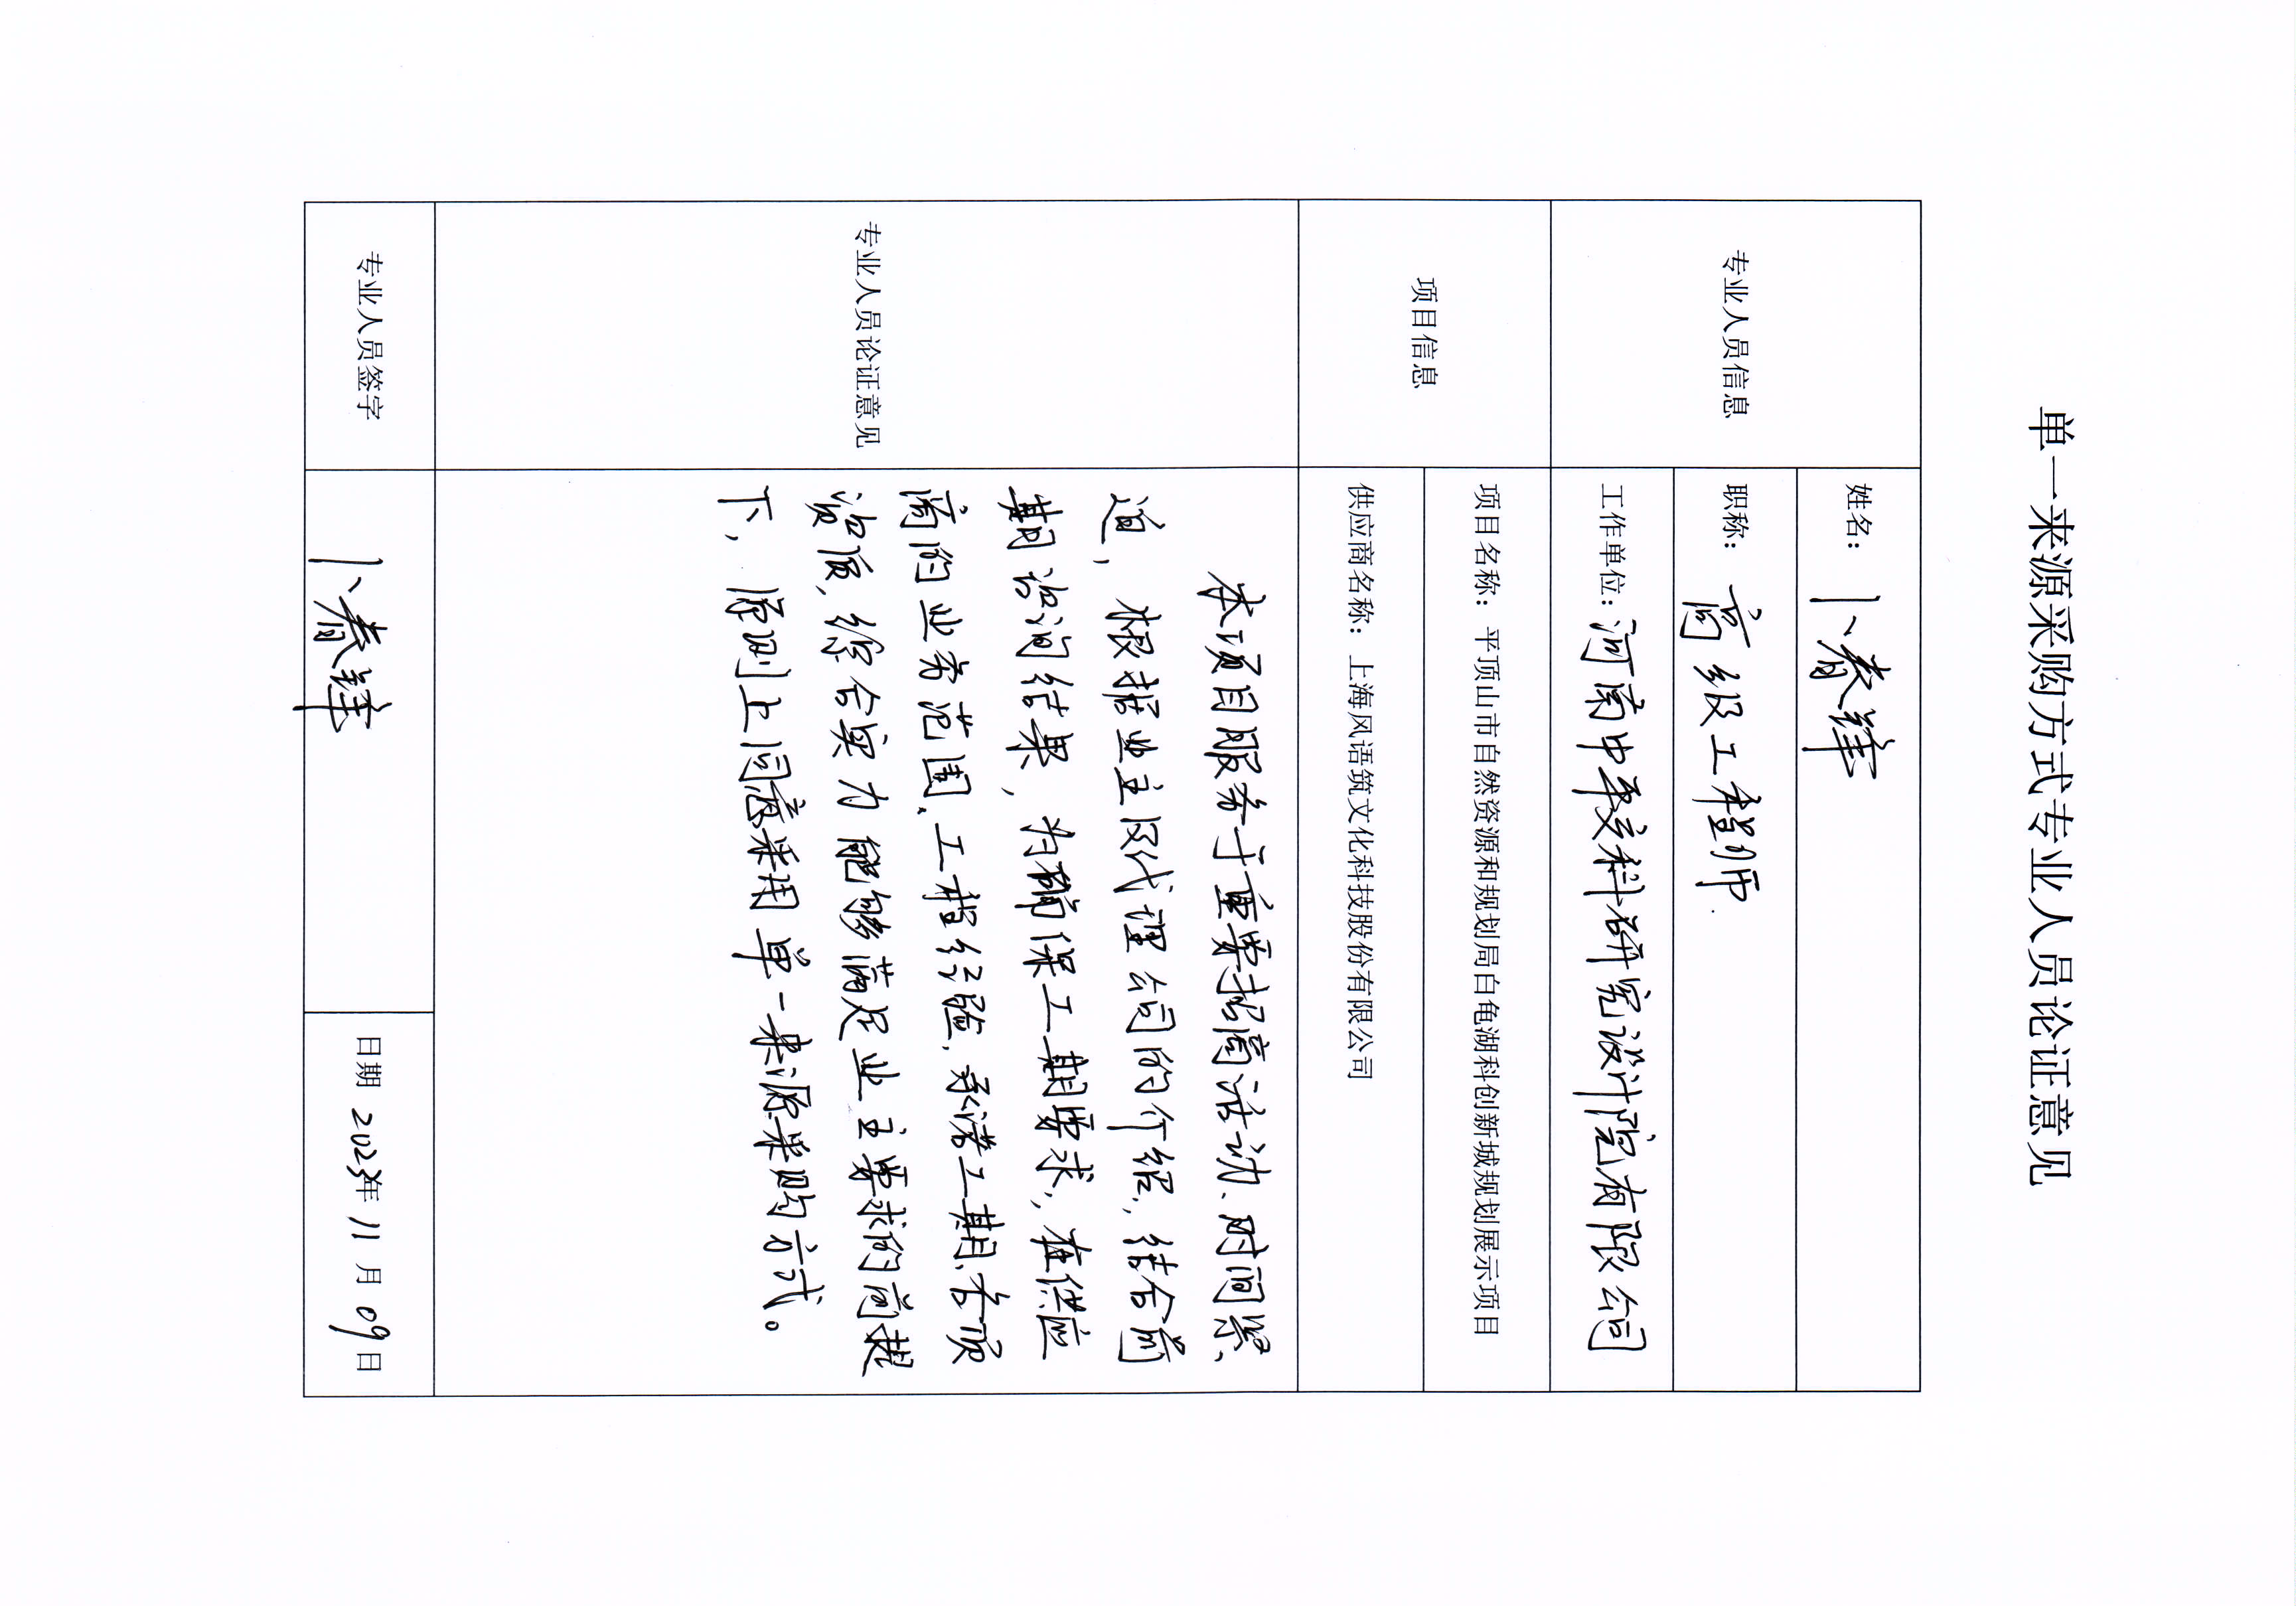 单一来源采购方式专业人员论证意见
专业人员信息
姓名：卜春
职称：高级工程师
工作单位：河南中平交科研究设计院有限公司
项目信息
项目名称：平顶山市自然资源和规划局白龟湖科创新城规划展示项目
供应商名称：上海风语筑文化科技股份有限公司
专业人员论证意见
本项目服务于重要招商活动、时间紧、
迫，根据业主及代理公司的介绍，结合前
期洽询结果，为确保工期要求，在供应
商的业务范围、工程经验、承诺工期、各项
资质、综合实力能够满足业主要求的前提
下，原则上同意采用单一来源采购方式。
专业人员签字
卜春
日期 2023年 11 月 09日